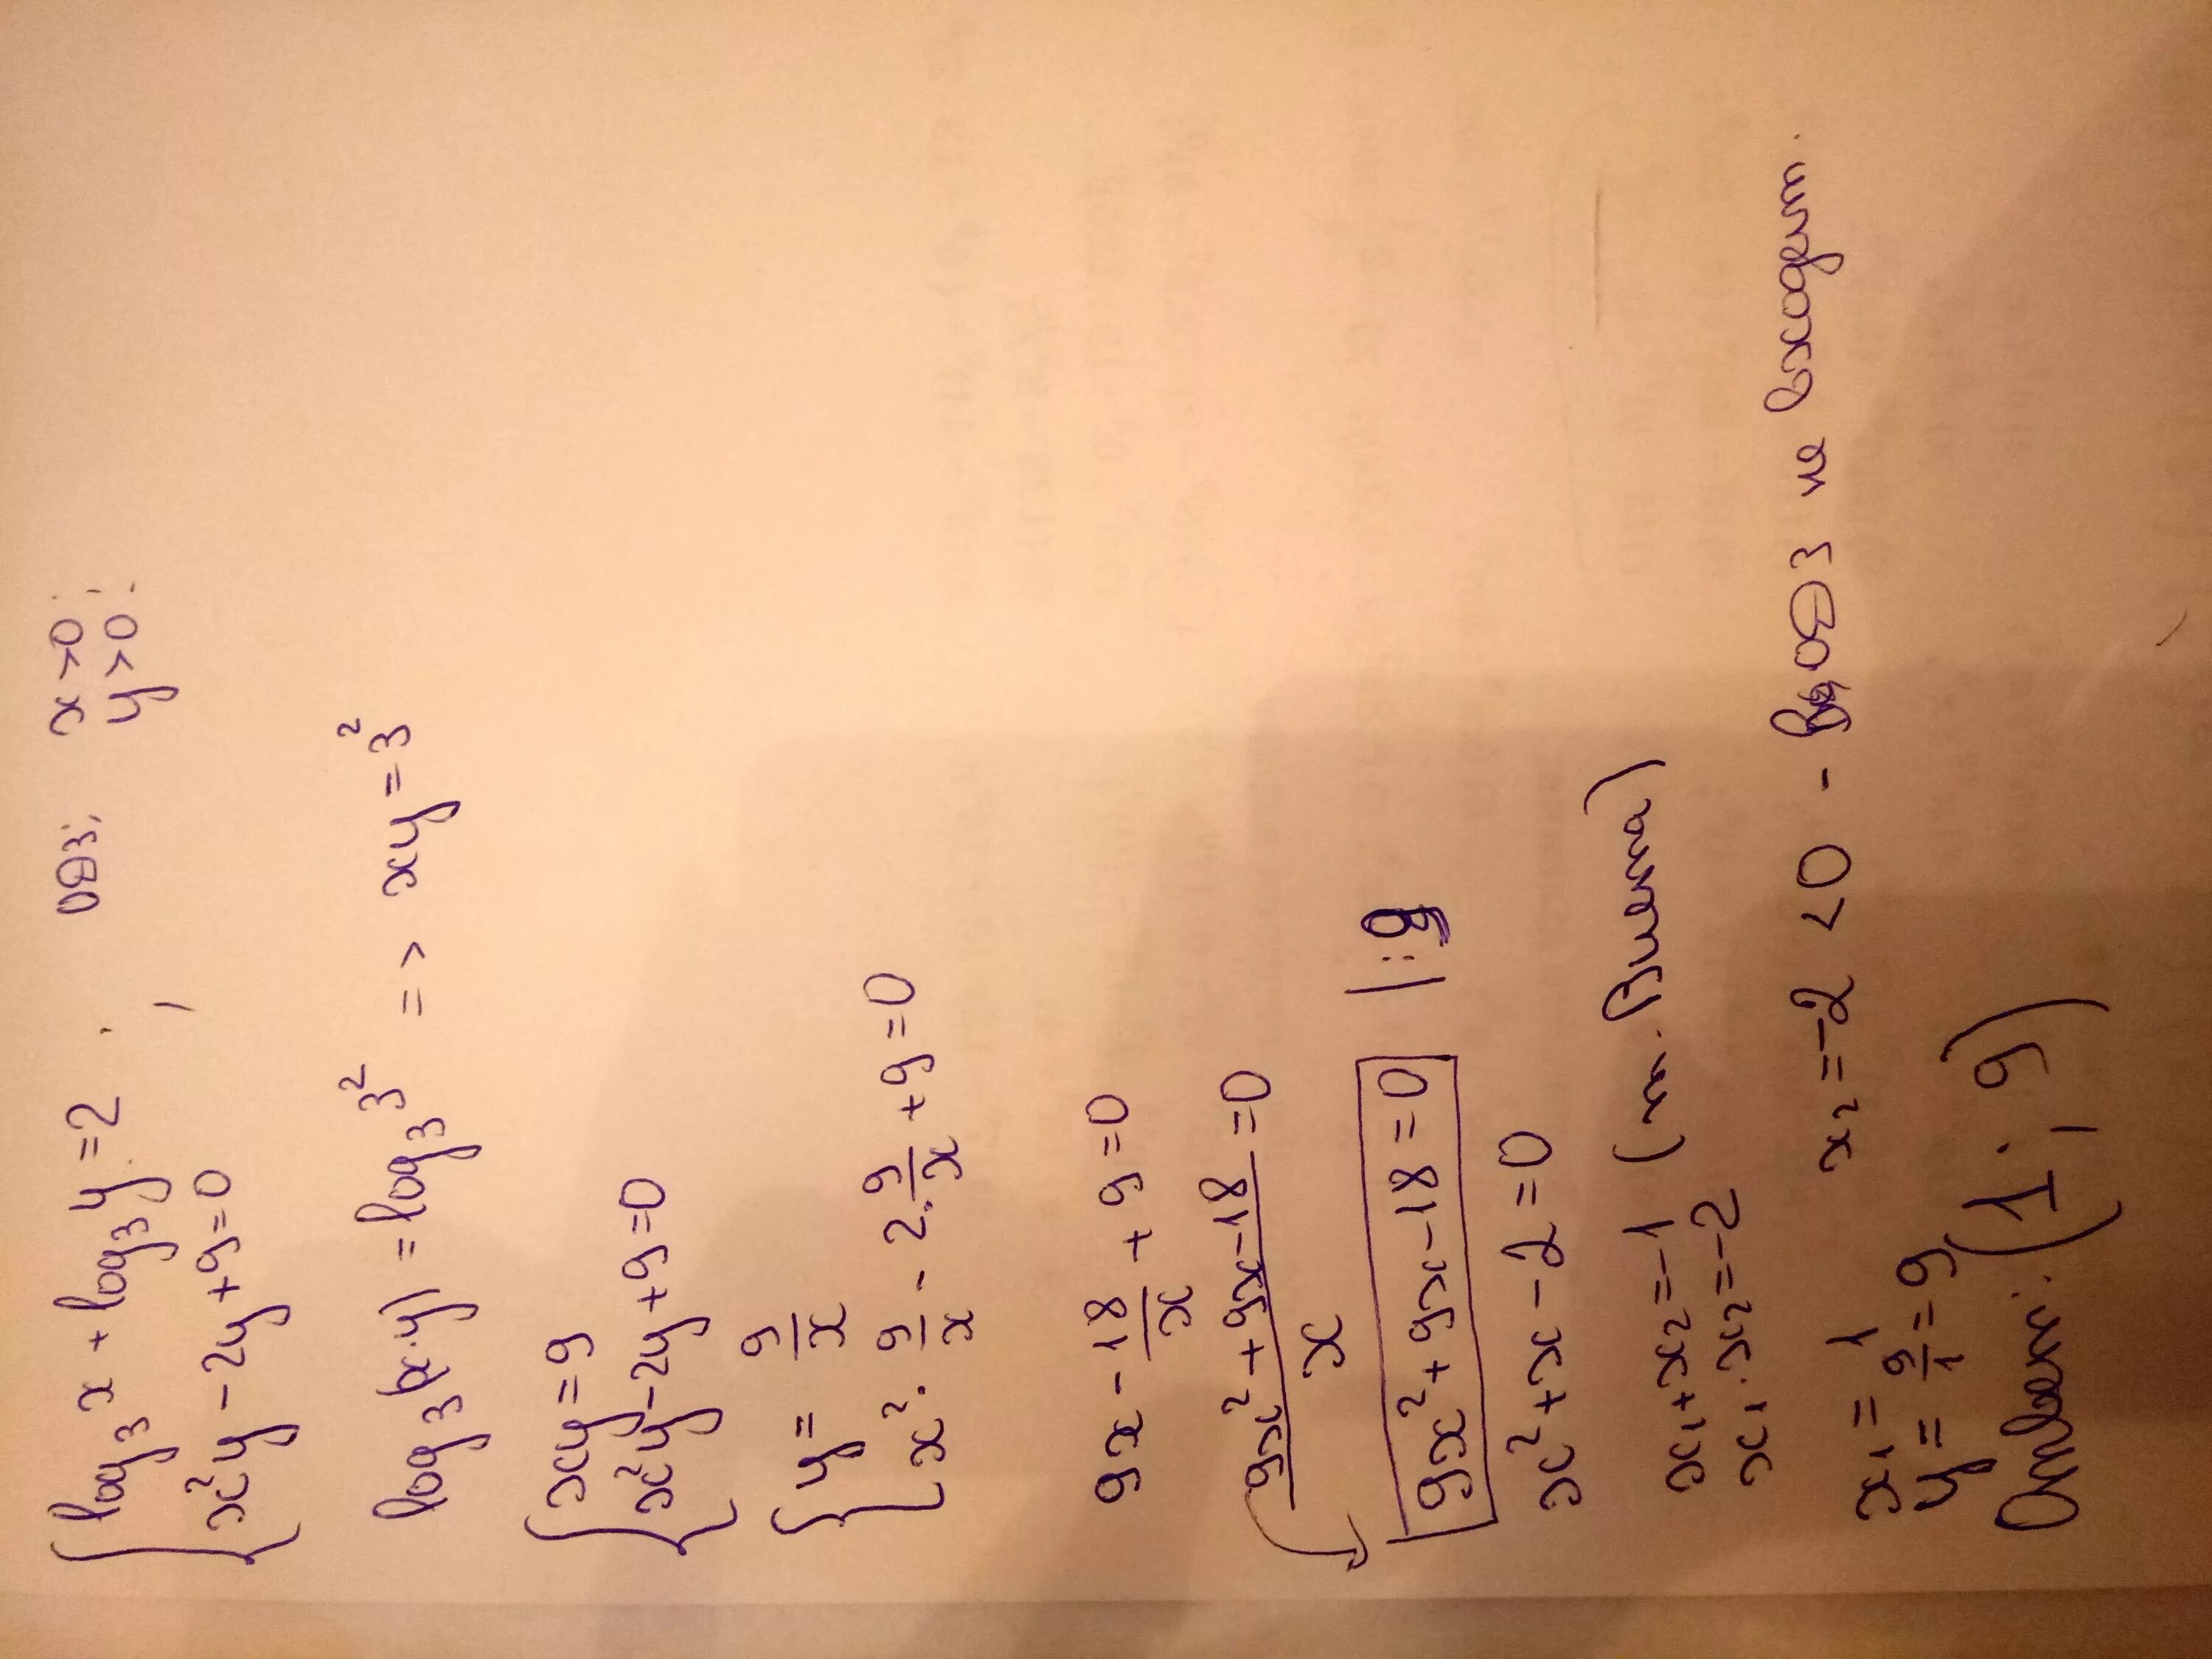 { log₃x + log₃y = 2 ; ОДЗ: x > 0 ;
x²y - 2y + 9 = 0 , y > 0 .
log₃(x·y) = log₃3² => xy = 3²
{ xy = 9
x²y - 2y + 9 = 0
{ y = 9/x
x² · 9/x - 2 · 9/x + 9 = 0
9x - 18/x + 9 = 0
(9x² + 9x - 18)/x = 0
9x² + 9x - 18 = 0 | : 9
x² + x - 2 = 0
x₁ + x₂ = -1 (т. Виета)
x₁ · x₂ = -2
x₁ = 1 x₂ = -2 < 0 - в ОДЗ не входит.
y = 9/1 = 9
Ответ: (1; 9)